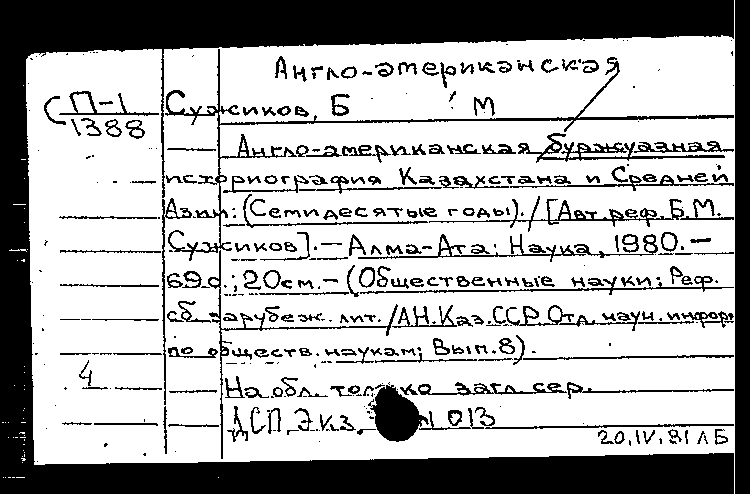 Англо-американская
СП-1
1388
Сужиков, Б М
Англо-американская буржуазная
историография Казахстана и Средней
Азии: (Семидесятые годы). / [Авт. реф. Б.М.
Сужиков]. — Алма-Ата: Наука, 1980. —
69 с.; 20 см. — (Общественные науки; Реф.
сб. зарубеж. лит. / АН. Каз.ССР. Отд. научн. информ
по обществ. наукам; Вып. 8).
4
На обл. только загл. сер.
ДСП, Экз. 013
20.IV.81 ЛБ